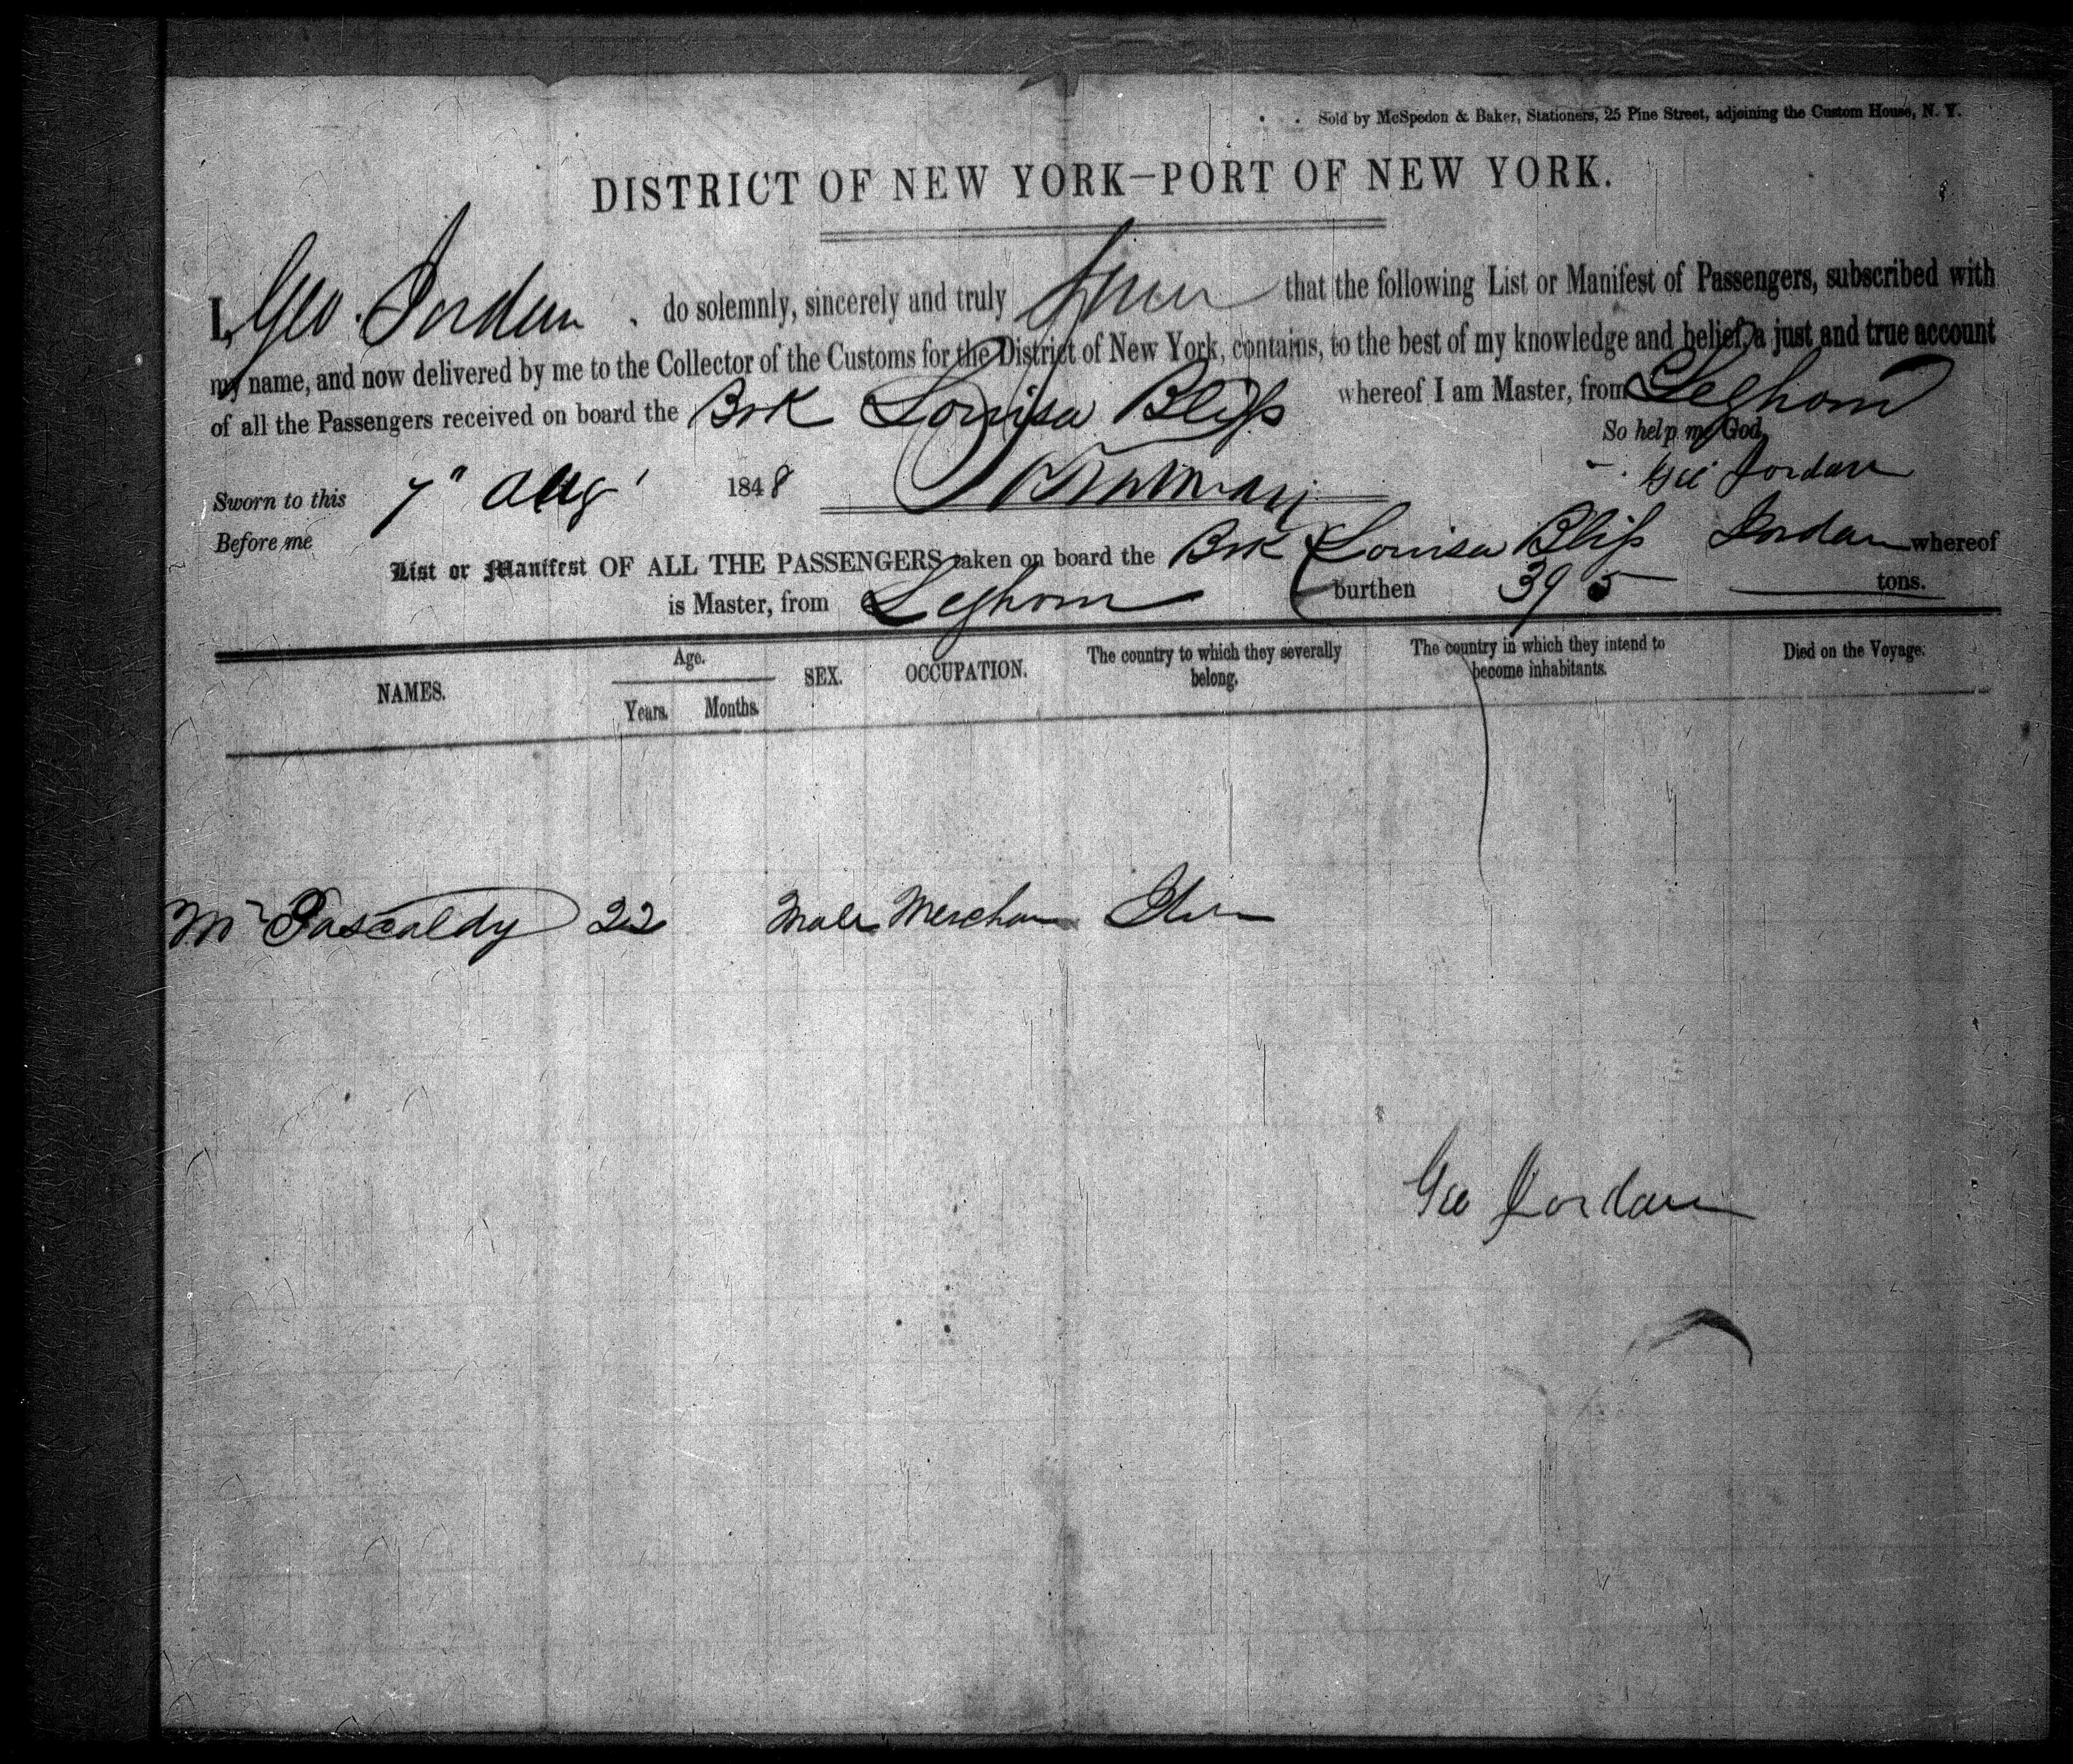 Sold by McSpedon & Baker, Stationers, 25 Pine Street, adjoining the Custom House, N. Y.
DISTRICT OF NEW YORK—PORT OF NEW YORK.
I, Geo. Jordan do solemnly, sincerely and truly swear that the following List or Manifest of Passengers, subscribed with
my name, and now delivered by me to the Collector of the Customs for the District of New York, contains, to the best of my knowledge and belief, a just and true account
of all the Passengers received on board the Brk Louisa Bliss whereof I am Master, from Leghorn
So help me God,
Sworn to this 7" Aug 1848
Geo Jordan
Before me
List or Manifest OF ALL THE PASSENGERS taken on board the Brk Louisa Bliss Jordan whereof
is Master, from Leghorn burthen 395 tons.
NAMES. Age. Years. Months. SEX. OCCUPATION. The country to which they severally belong. The country in which they intend to become inhabitants. Died on the Voyage.
Mr Pascaldy 22 Male Merchan
Geo Jordan